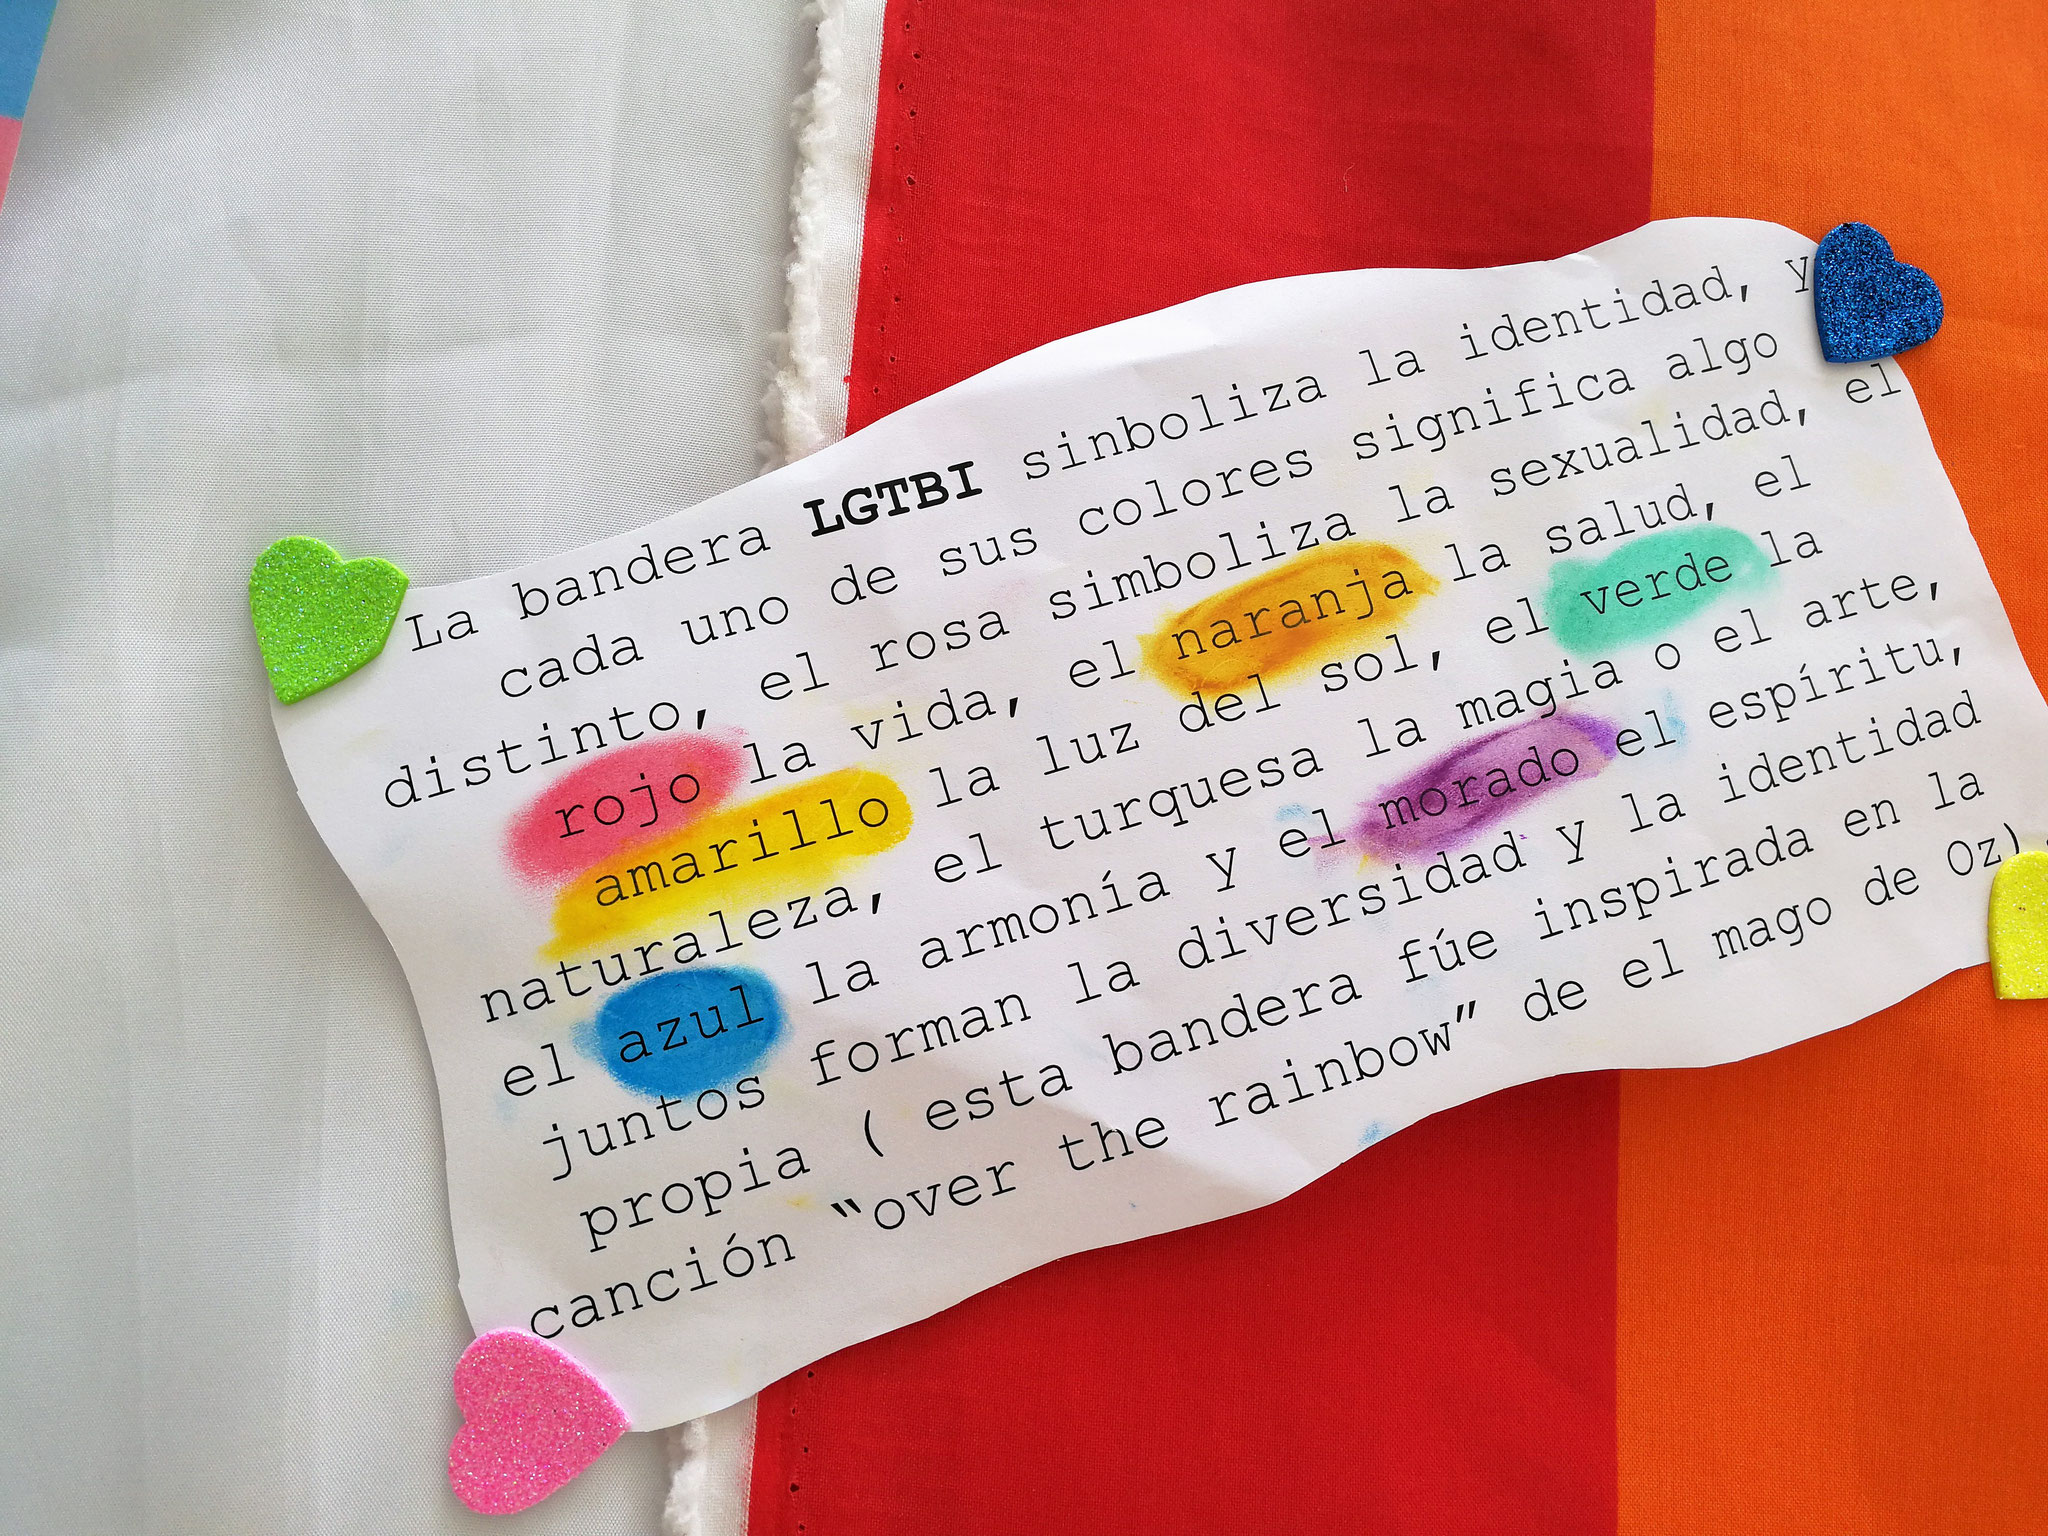 La bandera LGTBI sinboliza la identidad, y
cada uno de sus colores significa algo
distinto, el rosa simboliza la sexualidad, el
rojo la vida, el naranja la salud, el
amarillo la luz del sol, el verde la
naturaleza, el turquesa la magia o el arte,
el azul la armonía y el morado el espíritu,
juntos forman la diversidad y la identidad
propia ( esta bandera fúe inspirada en la
canción “over the rainbow” de el mago de Oz).